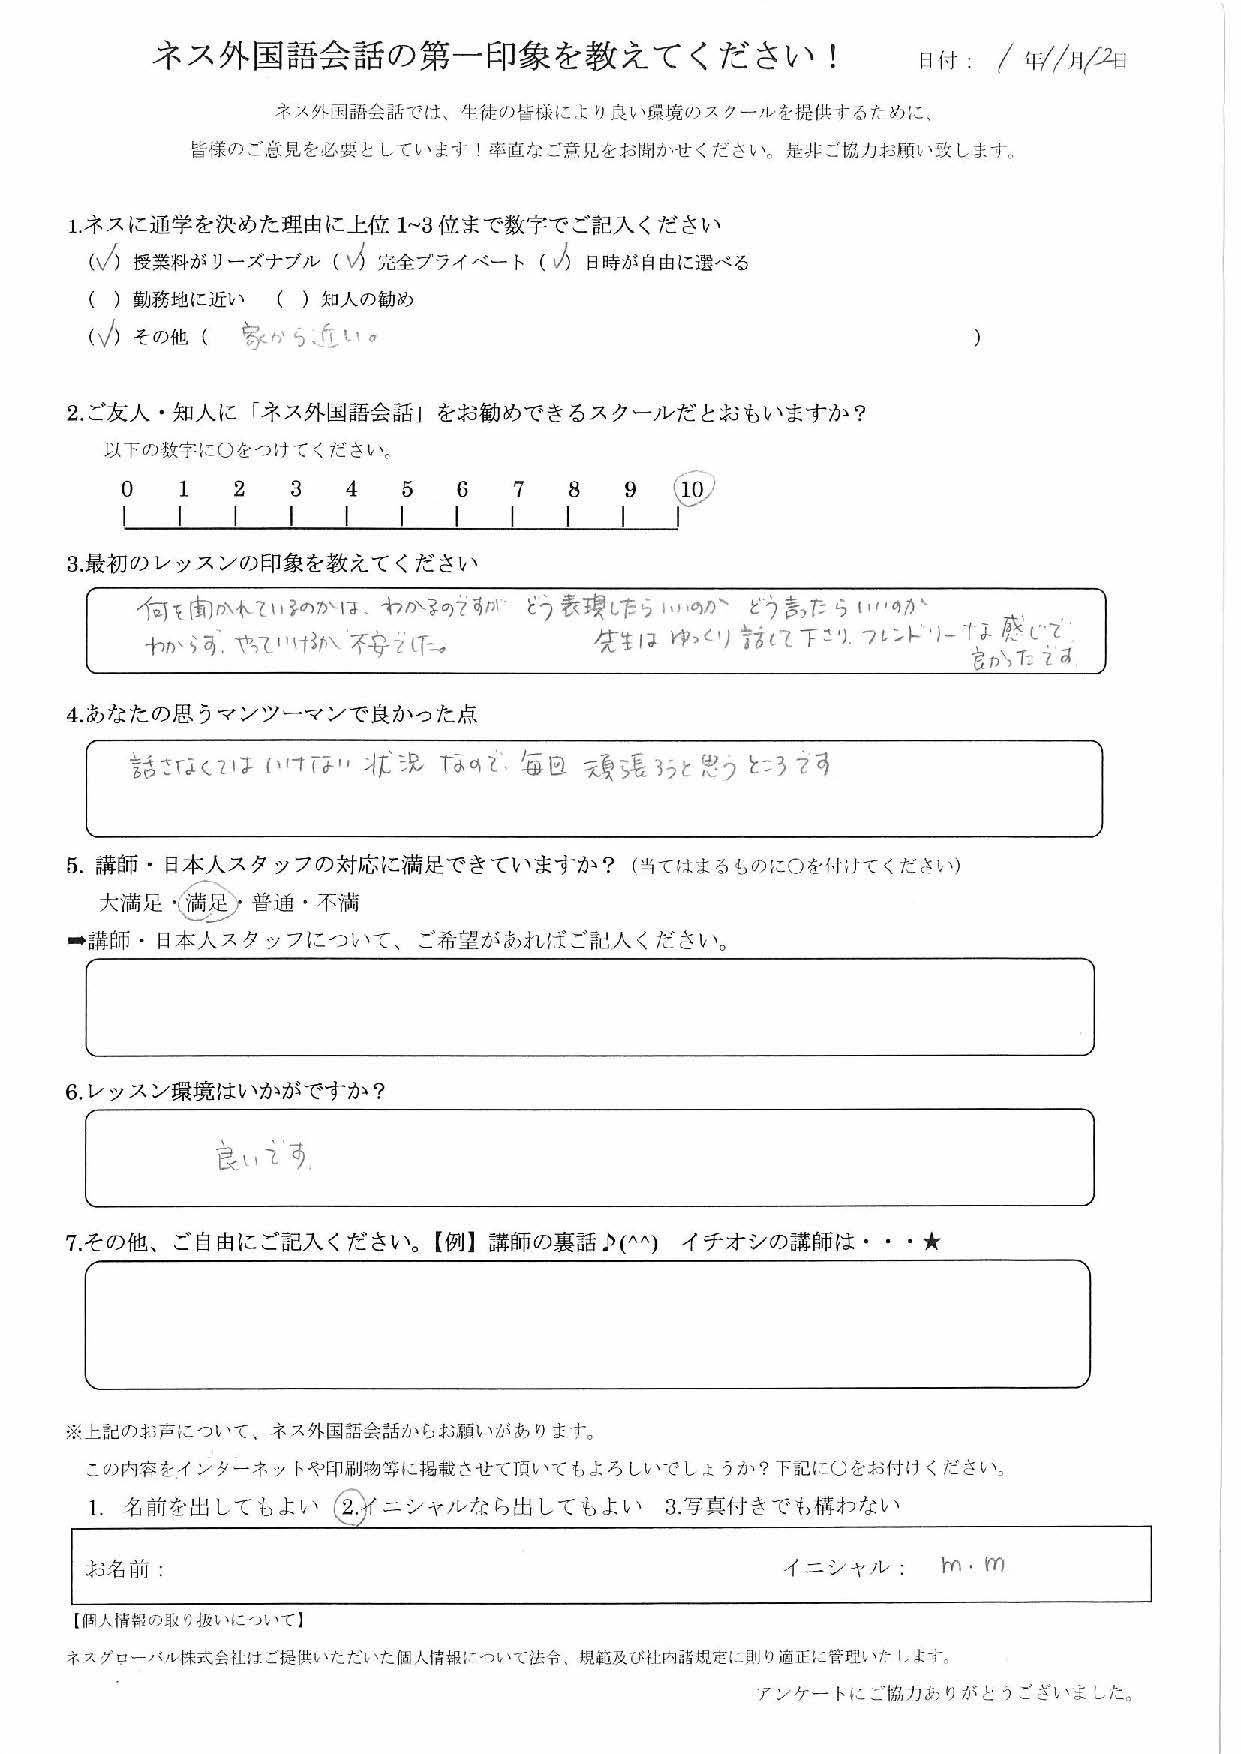 ネス外国語会話の第一印象を教えてください！　日付： / 年11月12日
ネス外国語会話では、生徒の皆様により良い環境のスクールを提供するために、
皆様のご意見を必要としています！率直なご意見をお聞かせください。是非ご協力お願い致します。
1.ネスに通学を決めた理由に上位 1~3 位まで数字でご記入ください
(✓) 授業料がリーズナブル (✓) 完全プライベート (✓) 日時が自由に選べる
( ) 勤務地に近い ( ) 知人の勧め
(✓) その他 ( 家から近い。 )
2.ご友人・知人に「ネス外国語会話」をお勧めできるスクールだとおもいますか？
以下の数字に〇をつけてください。
0 1 2 3 4 5 6 7 8 9 10
3.最初のレッスンの印象を教えてください
何を聞かれているのかは、わかるのですが どう表現したらいいのか どう言ったらいいのか
わからず、やっていけるか、不安でした。 先生は ゆっくり話して下さり、フレンドリーな感じで
良かったです。
4.あなたの思うマンツーマンで良かった点
話さなくてはいけない状況なので、毎回 頑張ろうと思うところです
5. 講師・日本人スタッフの対応に満足できていますか？（当てはまるものに〇を付けてください）
大満足・満足・普通・不満
➡講師・日本人スタッフについて、ご希望があればご記入ください。
6.レッスン環境はいかがですか？
良いです。
7.その他、ご自由にご記入ください。【例】講師の裏話♪(^^)　イチオシの講師は・・・★
※上記のお声について、ネス外国語会話からお願いがあります。
この内容をインターネットや印刷物等に掲載させて頂いてもよろしいでしょうか？下記に〇をお付けください。
1. 名前を出してもよい 2.イニシャルなら出してもよい 3.写真付きでも構わない
お名前：　イニシャル： m.m
【個人情報の取り扱いについて】
ネスグローバル株式会社はご提供いただいた個人情報について法令、規範及び社内諸規定に則り適正に管理いたします。
アンケートにご協力ありがとうございました。